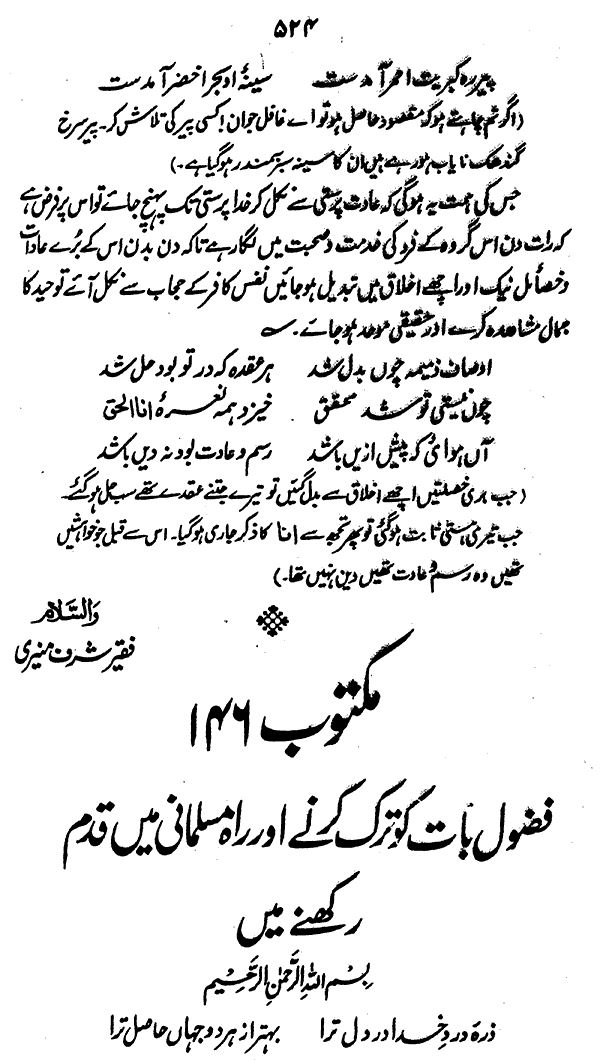 ۵۲۴
پیر رہ کبریت احمر آمدست سینۂ او بحر اخضر آمدست
(اگر تم چاہتے ہو کہ مقصود حاصل ہو تو اے غافل جوان! کسی پیر کی تلاش کر۔ پیر سرخ
گندھک نایاب ہو رہے ہیں ان کا سینہ سبز سمندر ہو گیا ہے۔)
جس کی ہمت یہ ہو گی کہ عادت پرستی سے نکل کر خدا پرستی تک پہنچ جائے تو اس پر فرض ہے
کہ رات دن اس گروہ کے فرد کی خدمت و صحبت میں لگا رہے تاکہ دن بدن اس کے بُرے عادات
و خصائل نیک اور اچھے اخلاق میں تبدیل ہو جائیں نفس کافر کے حجاب سے نکل آئے توحید کا
جمال مشاہدہ کرے اور حقیقی موحد ہو جائے۔ ؎
اوصاف ذمیمہ چوں بدل شد ہر عقدہ کہ در تو بود حل شد
چوں نیستی تو شد محقق خیزد ہمہ نعرۂ انا الحق
آں ہوائی کہ پیش ازیں باشد رسم و عادت بود نہ دیں باشد
(جب بری خصلتیں اچھے اخلاق سے بدل گئیں تو تیرے جتنے عقدے تھے سب حل ہو گئے۔
جب تیری ہستی ثابت ہو گئی تو پھر تجھ سے انا کا ذکر جاری ہو گیا۔ اس سے قبل جو خواہشیں
تھیں وہ رسم و عادت تھیں دین نہیں تھا۔)
والسَّلام
فقیر شرف منیری
مکتوب ۱۴۶
فضول بات کو ترک کرنے اور راہ مسلمانی میں قدم
رکھنے میں
بِسْمِ اللهِ الرَّحْمٰنِ الرَّحِيْمِ
ذرّہ دردِ خدا در دل ترا بہتر از ہر دو جہاں حاصل ترا